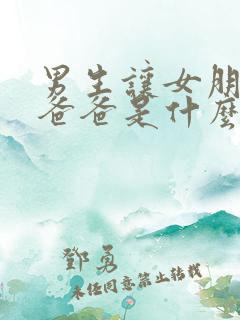 男生讓女朋
爸爸是什麼
鄧勇
未经同意禁止转载